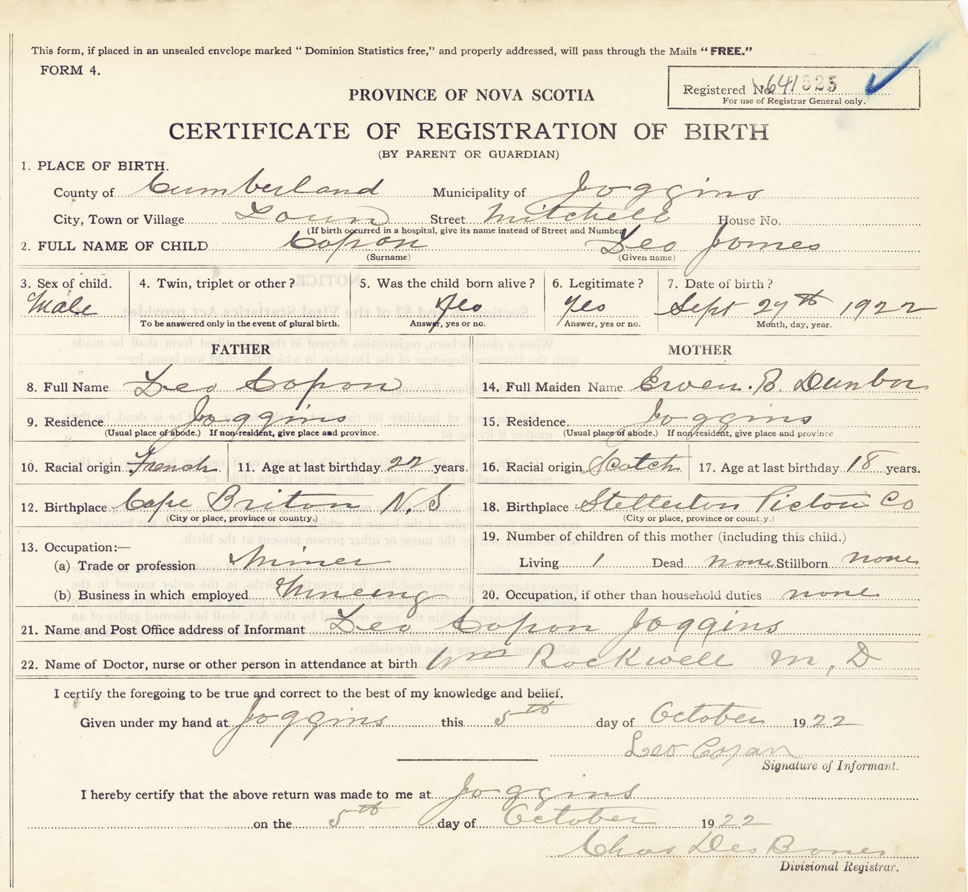 This form, if placed in an unsealed envelope marked “ Dominion Statistics free,” and properly addressed, will pass through the Mails “FREE.”
FORM 4.
Registered No. 641525
For use of Registrar General only.
PROVINCE OF NOVA SCOTIA
CERTIFICATE OF REGISTRATION OF BIRTH
(BY PARENT OR GUARDIAN)
1. PLACE OF BIRTH.
County of Cumberland Municipality of Joggins
City, Town or Village Town Street Mitchell House No.
(If birth occurred in a hospital, give its name instead of Street and Number)
2. FULL NAME OF CHILD Copon Leo James
(Surname) (Given name)
3. Sex of child. 4. Twin, triplet or other? 5. Was the child born alive? 6. Legitimate? 7. Date of birth?
Male Yes Yes Sept 29th 1922
To be answered only in the event of plural birth. Answer, yes or no. Answer, yes or no. Month, day, year.
FATHER MOTHER
8. Full Name Leo Copon 14. Full Maiden Name B. Dunbar
9. Residence Joggins 15. Residence Joggins
(Usual place of abode.) If non-resident, give place and province. (Usual place of abode.) If non-resident, give place and province
10. Racial origin French 11. Age at last birthday 22 years. 16. Racial origin Scotch 17. Age at last birthday 18 years.
12. Birthplace Cape Briton N.S 18. Birthplace Stellerton Picton Co
(City or place, province or country.) (City or place, province or country.)
13. Occupation:— 19. Number of children of this mother (including this child.)
(a) Trade or profession Miner Living 1 Dead none Stillborn none
(b) Business in which employed Mineing 20. Occupation, if other than household duties none
21. Name and Post Office address of Informant Leo Copon Joggins
22. Name of Doctor, nurse or other person in attendance at birth Wm Rockwell M, D
I certify the foregoing to be true and correct to the best of my knowledge and belief.
Given under my hand at Joggins this 5th day of October 1922
Leo Copan
Signature of Informant.
I hereby certify that the above return was made to me at Joggins
on the 5th day of October 1922
Chas Des
Divisional Registrar.